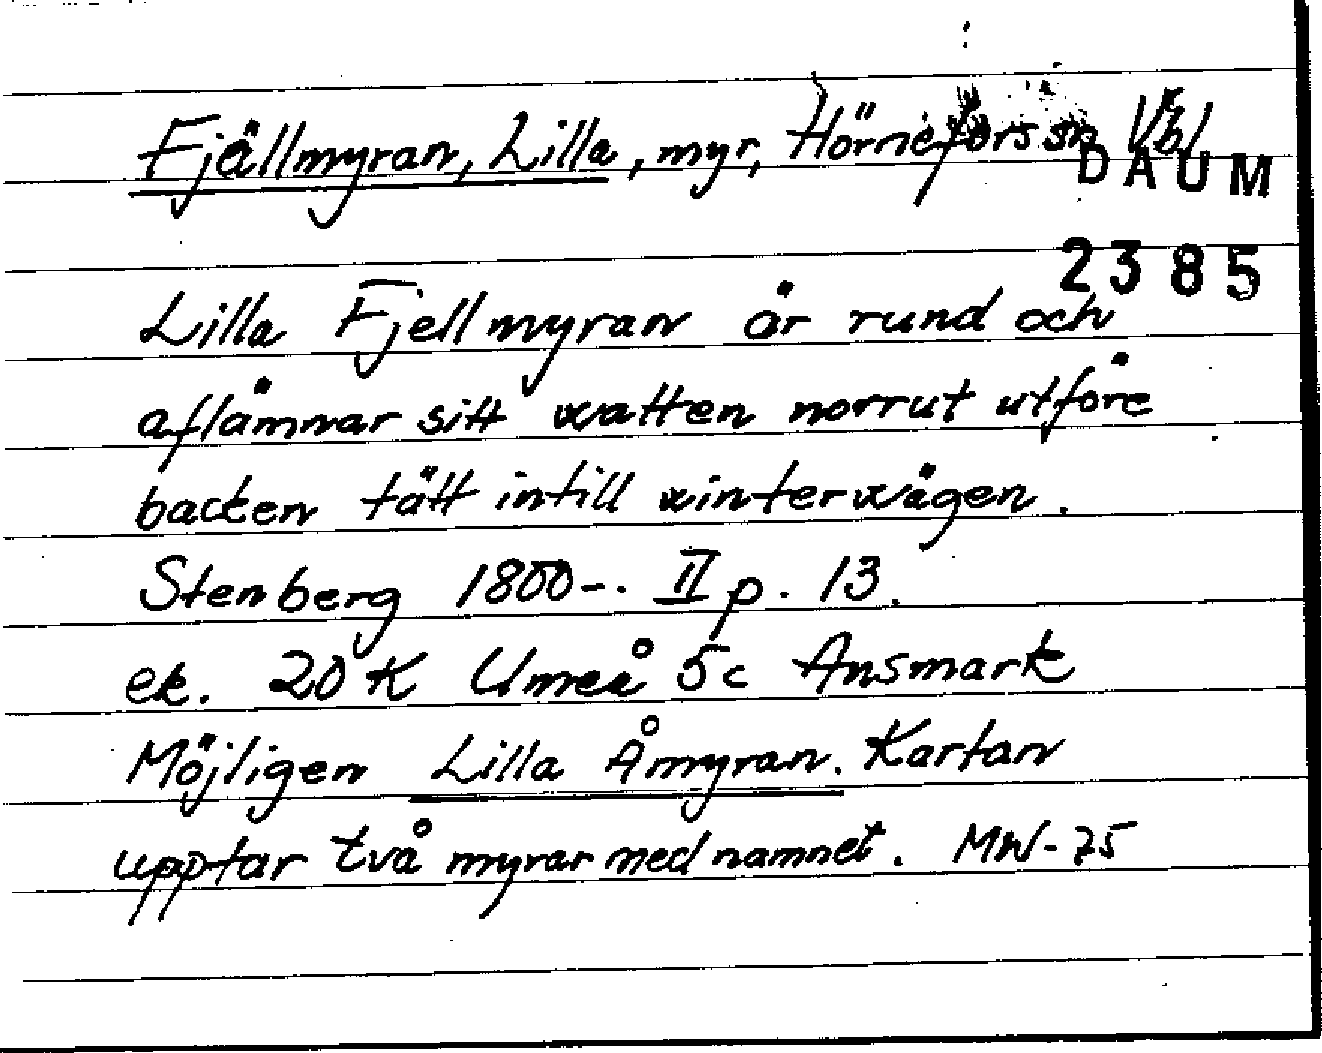 Fjällmyran, Lilla, myr, Hörnefors sn Vbl
DAUM
2385
Lilla Fjellmyran är rund och
aflämnar sitt watten norrut utföre
backen tätt intill winterwägen.
Stenberg 1800-. II p. 13.
ek. 20 K Umeå 5c Ansmark
Möjligen Lilla Åmyran. Kartan
upptar två myrar med namnet. MW-75